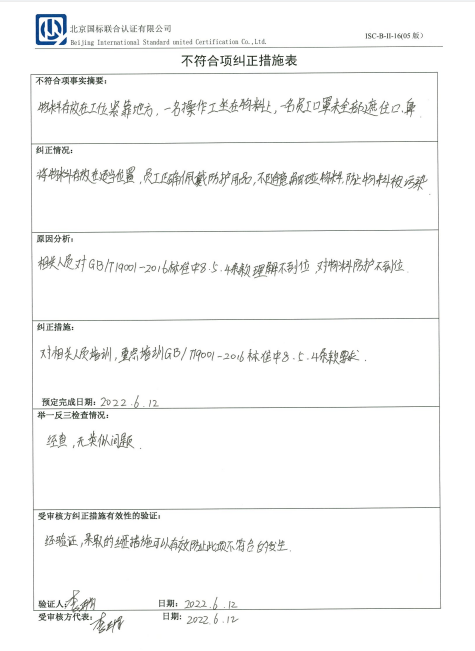 北京国标联合认证有限公司
Beijing International Standard united Certification Co.,Ltd.
ISC-B-II-16(05 版)
不符合项纠正措施表
不符合项事实摘要:
物料存放在工位紧靠地方,一名操作工坐在物料上,一名员工口罩未全部遮住口、鼻
纠正情况:
将物料存放在适当位置,员工正确佩戴防护用品,不随意触碰物料,防止物料被污染
原因分析:
相关人员对GB/T19001-2016标准中8.5.4条款理解不到位 对物料防护不到位
纠正措施:
对相关人员培训,重点培训GB/T19001-2016标准中8.5.4条款要求.
预定完成日期: 2022.6.12
举一反三检查情况:
经查,无类似问题.
受审核方纠正措施有效性的验证:
经验证,采取的纠正措施可以有效防止此项不符合的发生.
验证人: 日期: 2022.6.12
受审核方代表: 日期: 2022.6.12